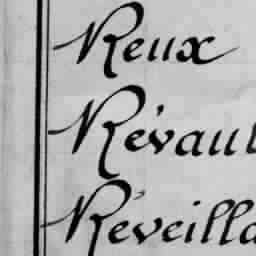 Reux
Révaut
Réveilla